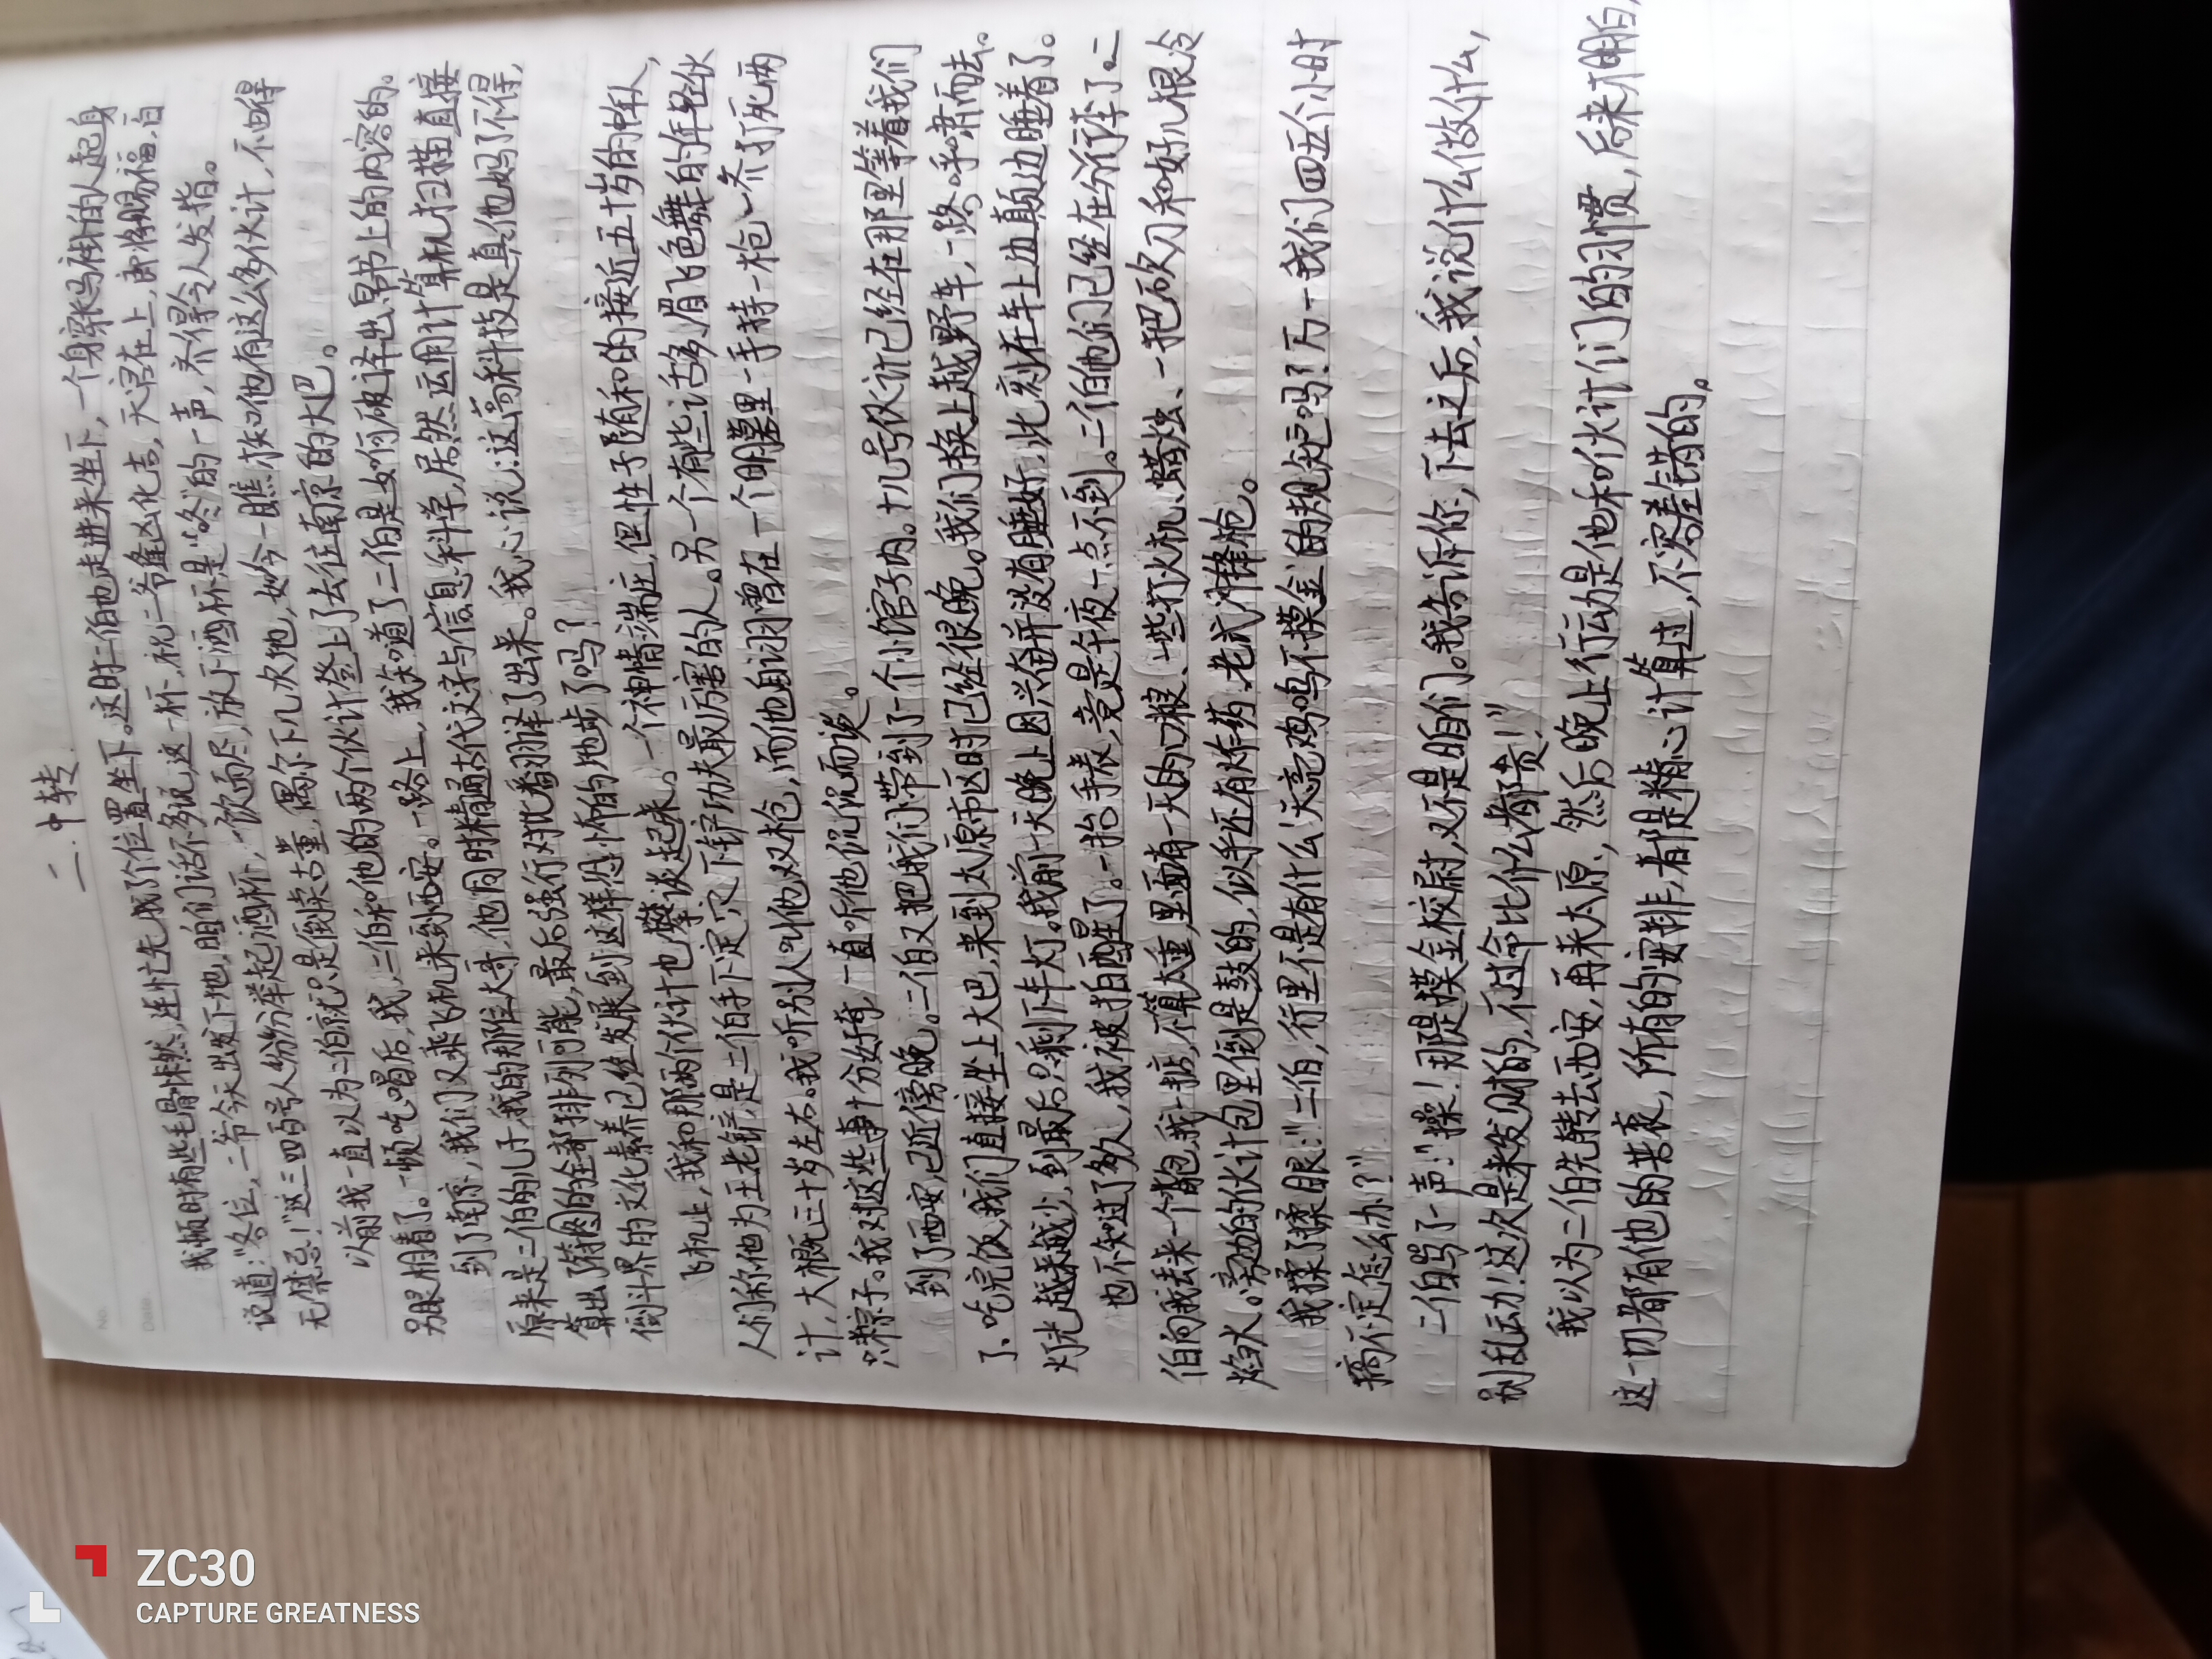 二.中转
我顿时有些毛骨悚然,连忙先找了个位置坐下。这时二伯也走进来坐下,一个身穿马褂的人起身
说道:"各位,二爷今天出发下地,咱们话不多说,这一杯,祝二爷逢凶化吉,天官在上,即将赐福,百
无禁忌!"这三四号人纷纷举起酒杯,一饮而尽,放下酒杯是"咚"的一声,齐得令人发指。
以前我一直以为二伯就只是倒卖古董,偶尔下几次地,如今一瞧求他有这么多伙计,不由得
另眼相看了。一顿吃喝后,我、二伯和他的两个伙计登上了去往南京的大巴。
到了南京,我们又乘飞机来到西安。一路上,我知道了二伯是如何破译出帛书上的内容的。
原来是二伯的儿子,我的那位大哥,他同时精通古代文字与信息科学,居然运用计算机扫描直接
算出了篇图的全部排列可能,最后强行对比翻译了出来。我心说:这高科技是真他妈了不得,
倒斗界的文化素养已经发展到这样恐怖的地步了吗?
飞机上,我和那两个伙计也攀谈起来。一个神情端正,但性子随和的接近五十岁的中年人,
人们称他为王老铲,是二伯手下定穴下铲功夫最厉害的人。另一个有些话多,眉飞色舞的年轻伙
计,大概三十岁左右。我听别人叫他双枪,而他自诩曾在一个明墓里一手持一枪,一齐打死两
只粽子。我对这些事十分好奇,一直听他沉沉而谈。
到了西安,已近傍晚。二伯又把我们带到了一个小馆子内。十几号伙计已经在那里等着我们
了、吃完饭,我们直接坐上大巴,来到太原市区时已经很晚。我们换上越野车,一路呼啸而去。
灯光越来越少,到最后只剩下车灯。我前一天晚上因兴奋并没有睡好,此刻在车上边颠边睡着了。
也不知过了多久,我被拍醒了。一抬手表,竟是午夜一点不到。二伯他们已经在分行李了。二
伯向我丢来一个背包,我一掂,不算太重,里面有一天的口粮、一些打火机、蜡烛、一把砍刀和好几根冷
焰火。旁边的伙计包里倒是鼓的,似乎还有炸药、老式冲锋枪。
我揉了揉眼:"二伯,行里不是有什么'天亮鸡鸣不摸金'的规矩吗?万一我们四五个小时
搞不定怎么办?"
二伯骂了一声:"操!那是摸金校尉,又不是咱们。我告诉你,下去之后,我说什么做什么,
别乱动!这次是来发财的,不过命比什么都贵!"
我以为二伯先转去西安,再来太原,然后晚上行动是他和伙计们的习惯,后来才明白,
这一切都有他的苦衷,所有的安排,都是精心计算过,不容差错的。
ZC30
CAPTURE GREATNESS